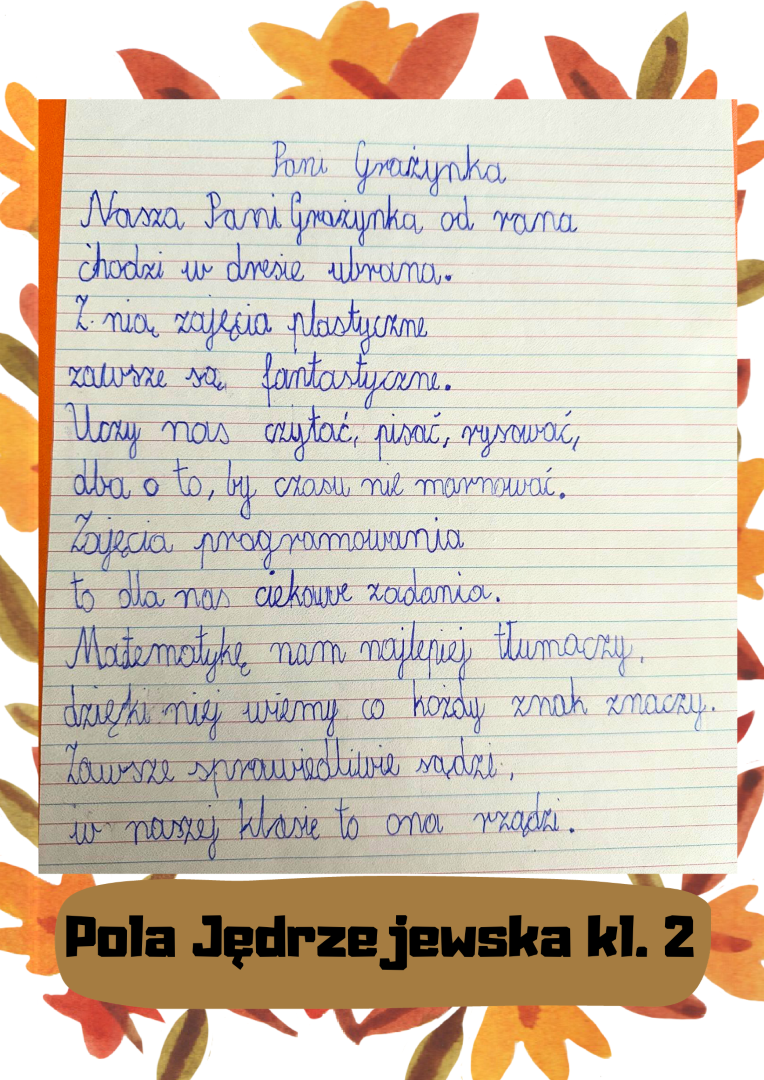 Pani Grażynka
Nasza Pani Grażynka od rana
chodzi w dresie ubrana.
Z nią zajęcia plastyczne
zawsze są fantastyczne.
Uczy nas czytać, pisać, rysować,
dba o to, by czasu nie marnować.
Zajęcia programowania
to dla nas ciekawe zadania.
Matematykę nam najlepiej tłumaczy,
dzięki niej wiemy co każdy znak znaczy.
Zawsze sprawiedliwie sądzi,
w naszej klasie to ona rządzi.
Pola Jędrzejewska kl. 2